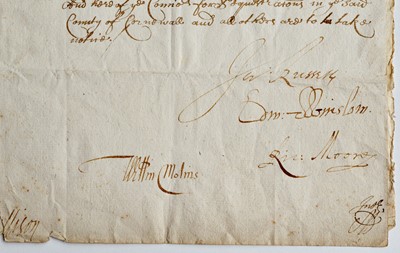 And hereof ye Commrs for Sequestrations in ye said
County of Cornwall and all others are to take
notice.
Edm: Winslow.
Ric: Moore
Willm Molins